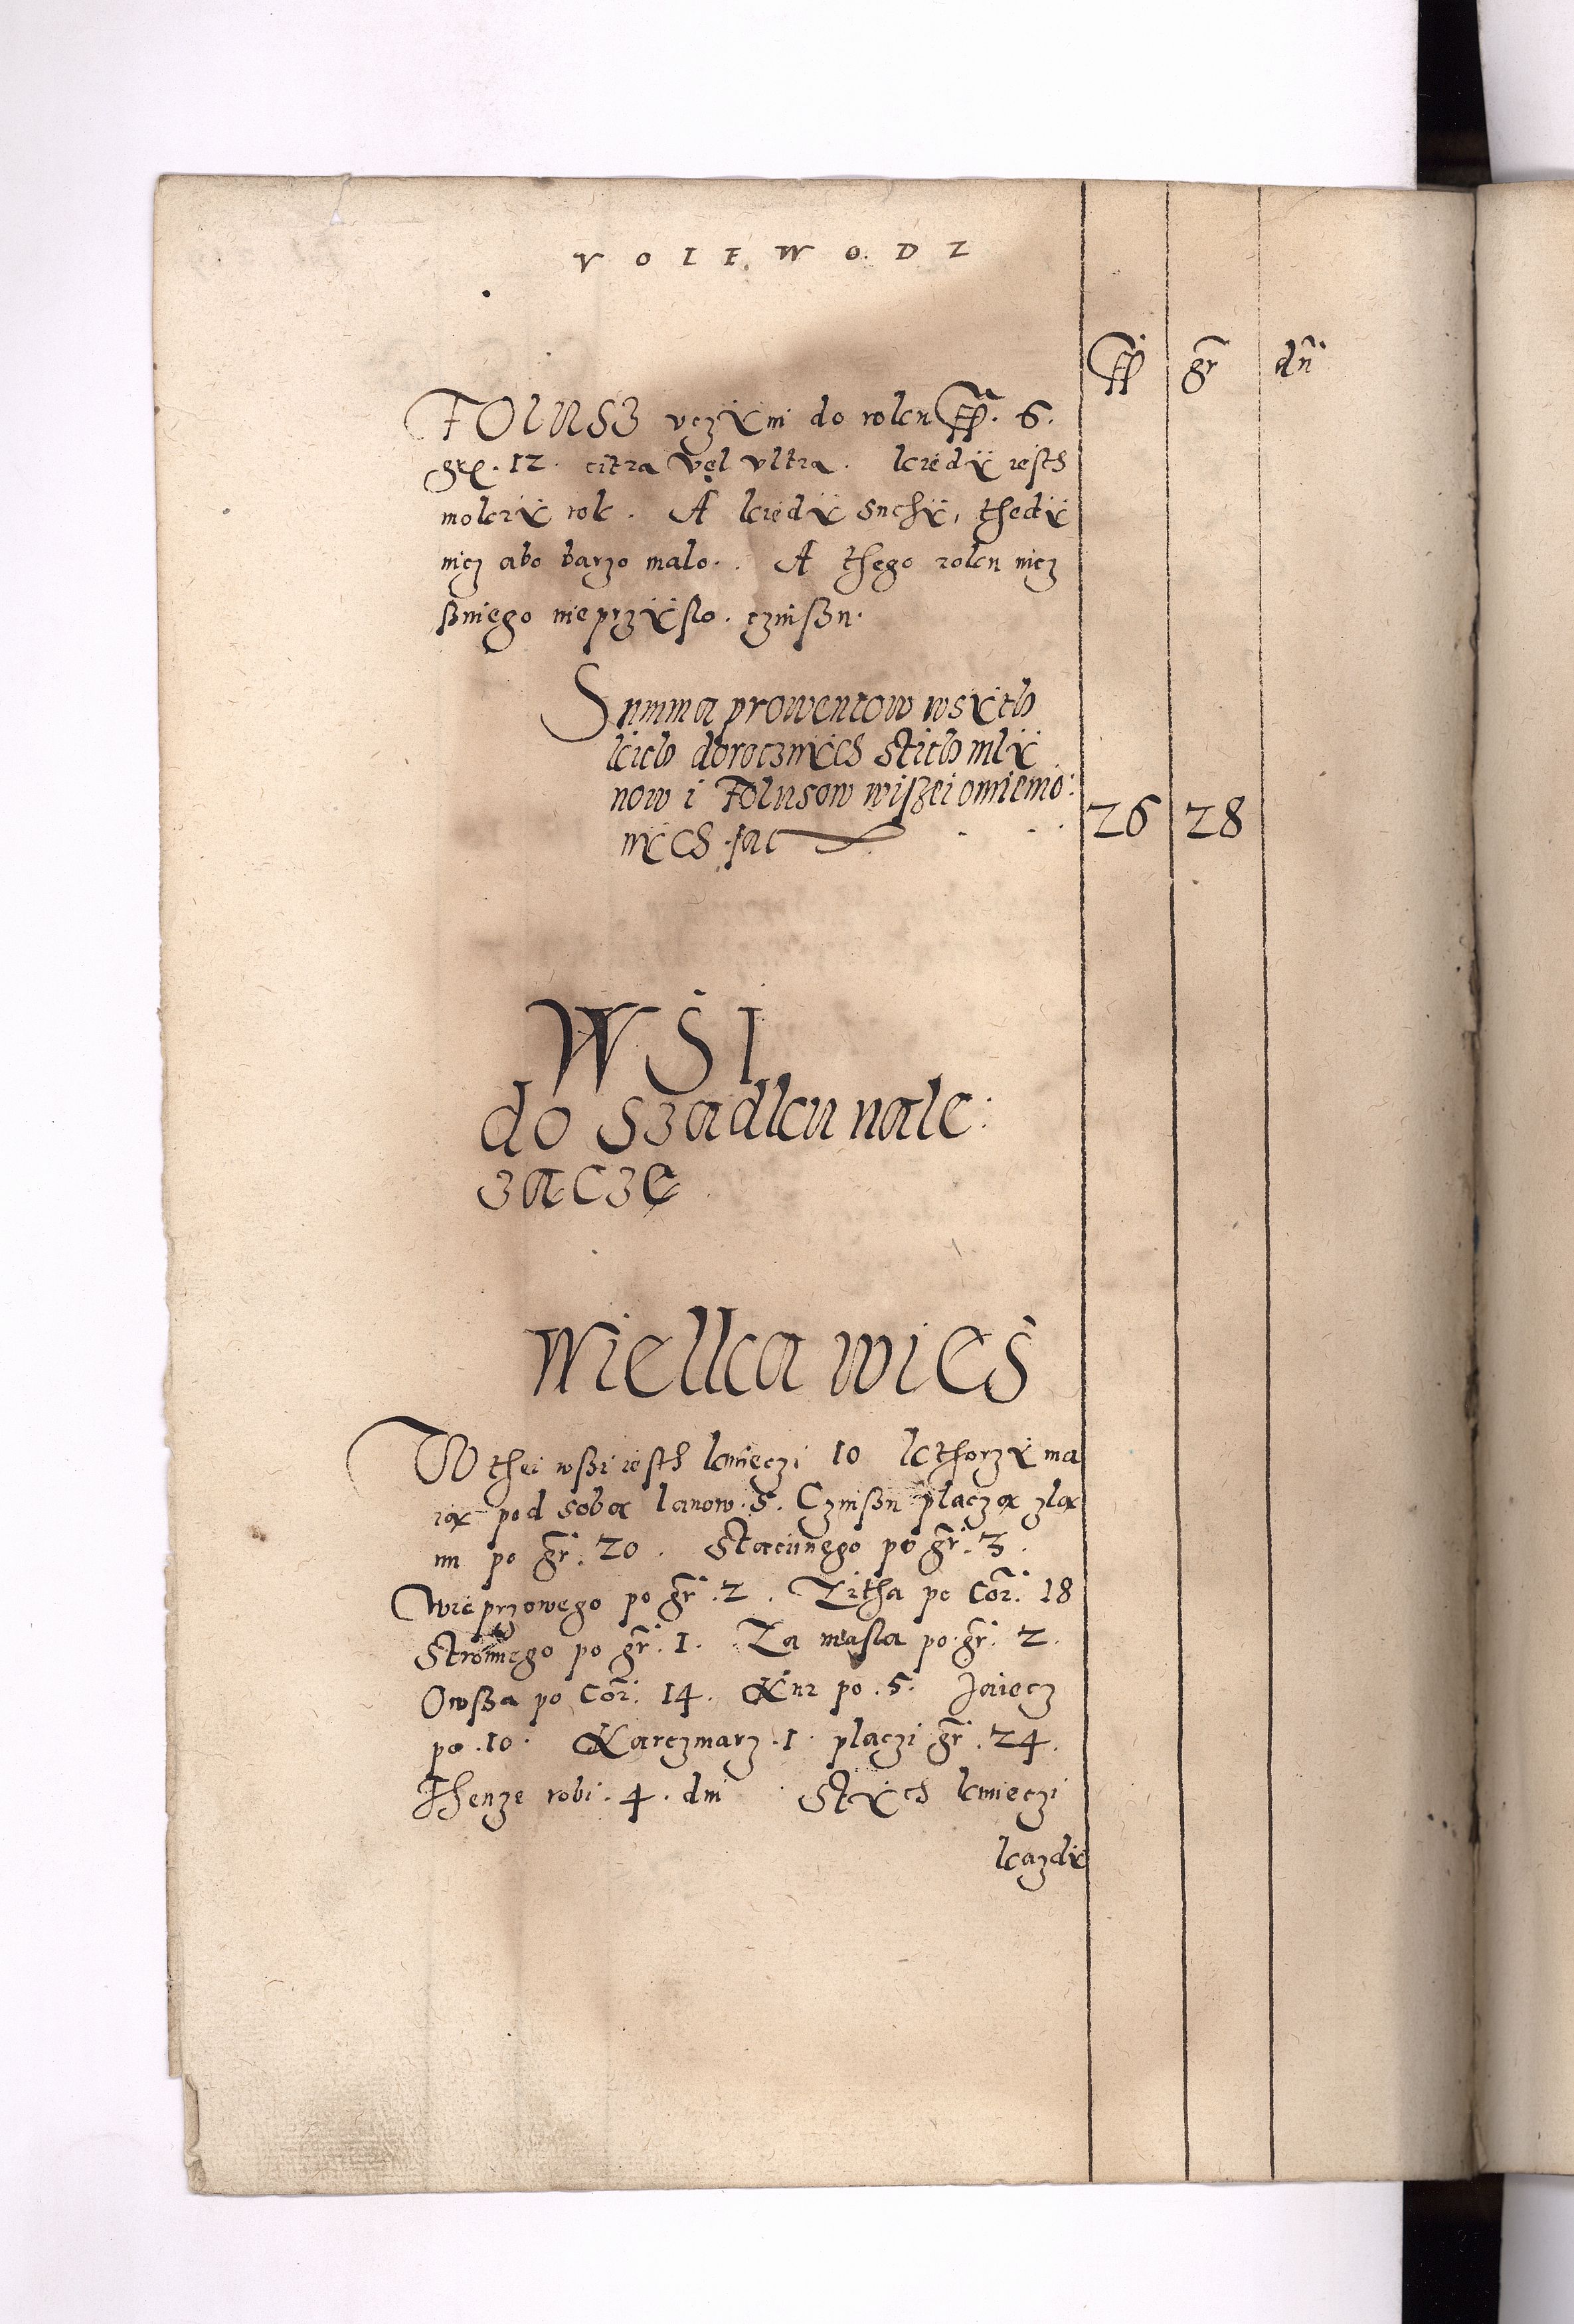 VOIEWODZ
ff gr dn
FOLUSZ vczÿni do roku ff. 6.
gr. 12. citra vel vltra. kiedÿ iesth
mokrÿ rok. A kiedÿ suchÿ, thedÿ
nicz abo barzo malo. A thego roku nicz
szniego nie prziÿslo. czinszu.
Summa prowentow wsÿth
kich dorocznÿch stich mlÿ
now i Folusow wiszei omieno:
nÿch fac 26 28
WSI
do Szadku nale:
zacze
Wielka wies
W thei wszi iesth kmieczi 10 kthorzÿ ma
ią pod sobą lanow. 5. Czinszu placzą zla
nu po gr. 20. Stacinego po gr. 3.
Wieprzowego po gr. 2. Zitha po Cor. 18
Stronnego po gr. 1. Za masla po gr. 2.
Owsza po Cor. 14. Kur po. 5. Jaiecz
po. 10. Karczmarz. 1. placzi gr. 24.
Thenze robi. 4. dni Stÿch kmieczi
kazdÿ